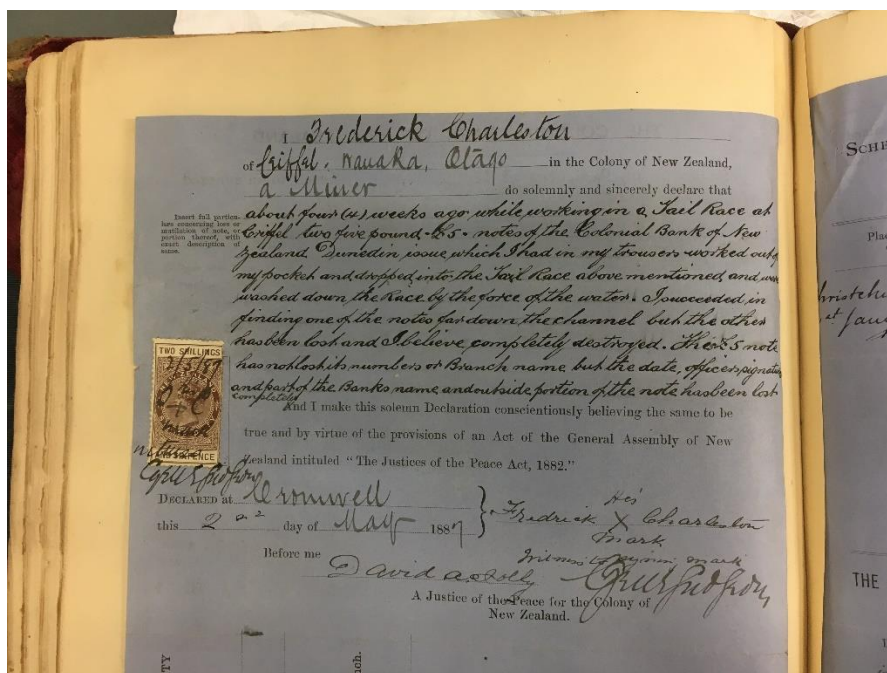 I Frederick Charleston
of Criffel. Wanaka, Otago in the Colony of New Zealand,
a Miner do solemnly and sincerely declare that
Insert full particu-
lars concerning loss or
mutilation of note, or
portion thereof, with
exact description of
same.
about four (4) weeks ago while working in a Tail Race at
Criffel two five pound - £5 - notes of the Colonial Bank of New
Zealand Dunedin issue, which I had in my trousers worked out of
my pocket and dropped into the Tail Race above mentioned, and were
washed down the Race by the force of the water. I succeeded in
finding one of the notes far down the channel but the other
has been lost and I believe completely destroyed. The £5 note
has not lost its numbers or Branch name, but the date, officers signature
and part of the Banks name and outside portion of the note has been lost
completely
And I make this solemn Declaration conscientiously believing the same to be
true and by virtue of the provisions of an Act of the General Assembly of New
Zealand intituled "The Justices of the Peace Act, 1882."
TWO SHILLINGS
2/5/97
SIXPENCE
DECLARED at Cromwell
this 2nd day of May 1887
Fredrick X Charleston
His
mark
Before me
Witness to mark
David A. Jolly
A Justice of the Peace for the Colony of
New Zealand.
SCHE
Pla
hristch
at Jan
THE
TY
nch.